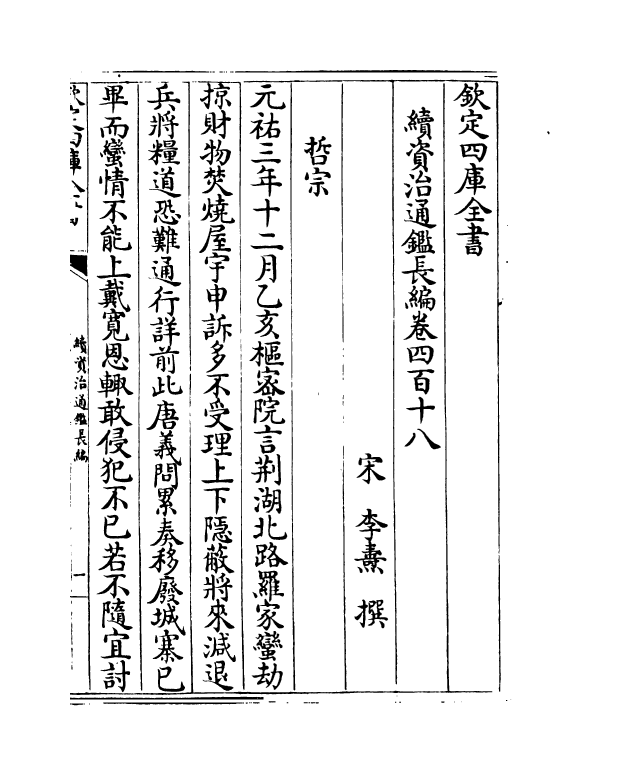 欽定四庫全書
續資治通鑑長編卷四百十八
宋 李燾 撰
哲宗
元祐三年十二月乙亥樞宻院言荆湖北路羅家蠻劫
掠財物焚燒屋宇申訴多不受理上下隱蔽將來減退
兵將糧道恐難通行詳前此唐義問累奏移廢城寨已
畢而蠻情不能上戴寬恩輙敢侵犯不已若不隨宜討
續資治通鑑長編
一